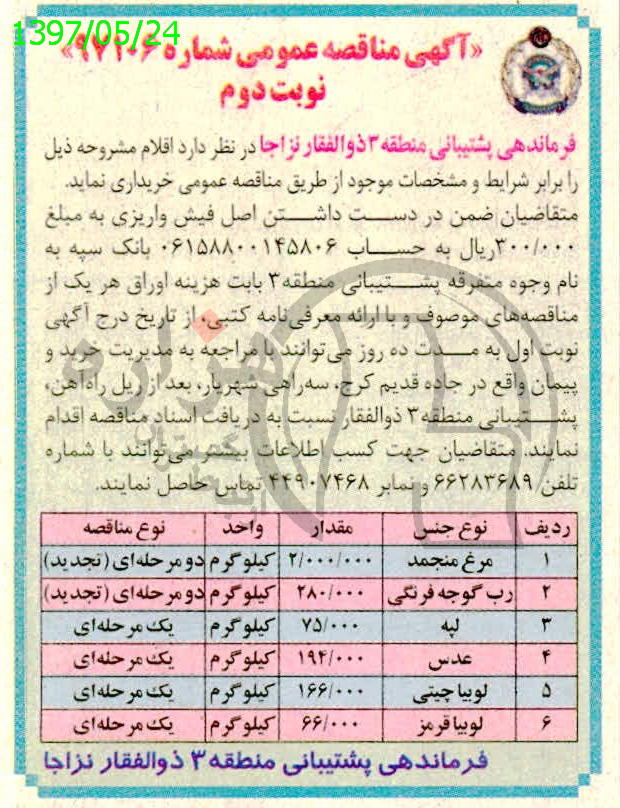 1397/05/24
«آگهی مناقصه عمومی شماره ۶-۹۷۱»
نوبت دوم
فرماندهی پشتیبانی منطقه ۳ ذوالفقار نزاجا در نظر دارد اقلام مشروحه ذیل
را برابر شرایط و مشخصات موجود از طریق مناقصه عمومی خریداری نماید.
متقاضیان ضمن در دست داشتن اصل فیش واریزی به مبلغ
۳۰۰/۰۰۰ ریال به حساب ۰۶۱۵۸۸۰۰۱۴۵۸۰۶ بانک سپه به
نام وجوه متفرقه پشتیبانی منطقه ۳ بابت هزینه اوراق هر یک از
مناقصه‌های موصوف و با ارائه معرفی‌نامه کتبی، از تاریخ درج آگهی
نوبت اول به مدت ده روز می‌توانند با مراجعه به مدیریت خرید و
پیمان واقع در جاده قدیم کرج، سه‌راهی شهریار، بعد از ریل راه‌آهن،
پشتیبانی منطقه ۳ ذوالفقار نسبت به دریافت اسناد مناقصه اقدام
نمایند. متقاضیان جهت کسب اطلاعات بیشتر می‌توانند با شماره
تلفن ۶۶۲۸۳۶۸۹ و نمابر ۴۴۹۰۷۴۶۸ تماس حاصل نمایند.
ردیف نوع جنس مقدار واحد نوع مناقصه
۱ مرغ منجمد ۲/۰۰۰/۰۰۰ کیلوگرم دو مرحله‌ای (تجدید)
۲ رب گوجه فرنگی ۲۸۰/۰۰۰ کیلوگرم دو مرحله‌ای (تجدید)
۳ لپه ۷۵/۰۰۰ کیلوگرم یک مرحله‌ای
۴ عدس ۱۹۴/۰۰۰ کیلوگرم یک مرحله‌ای
۵ لوبیا چیتی ۱۶۶/۰۰۰ کیلوگرم یک مرحله‌ای
۶ لوبیا قرمز ۶۶/۰۰۰ کیلوگرم یک مرحله‌ای
فرماندهی پشتیبانی منطقه ۳ ذوالفقار نزاجا